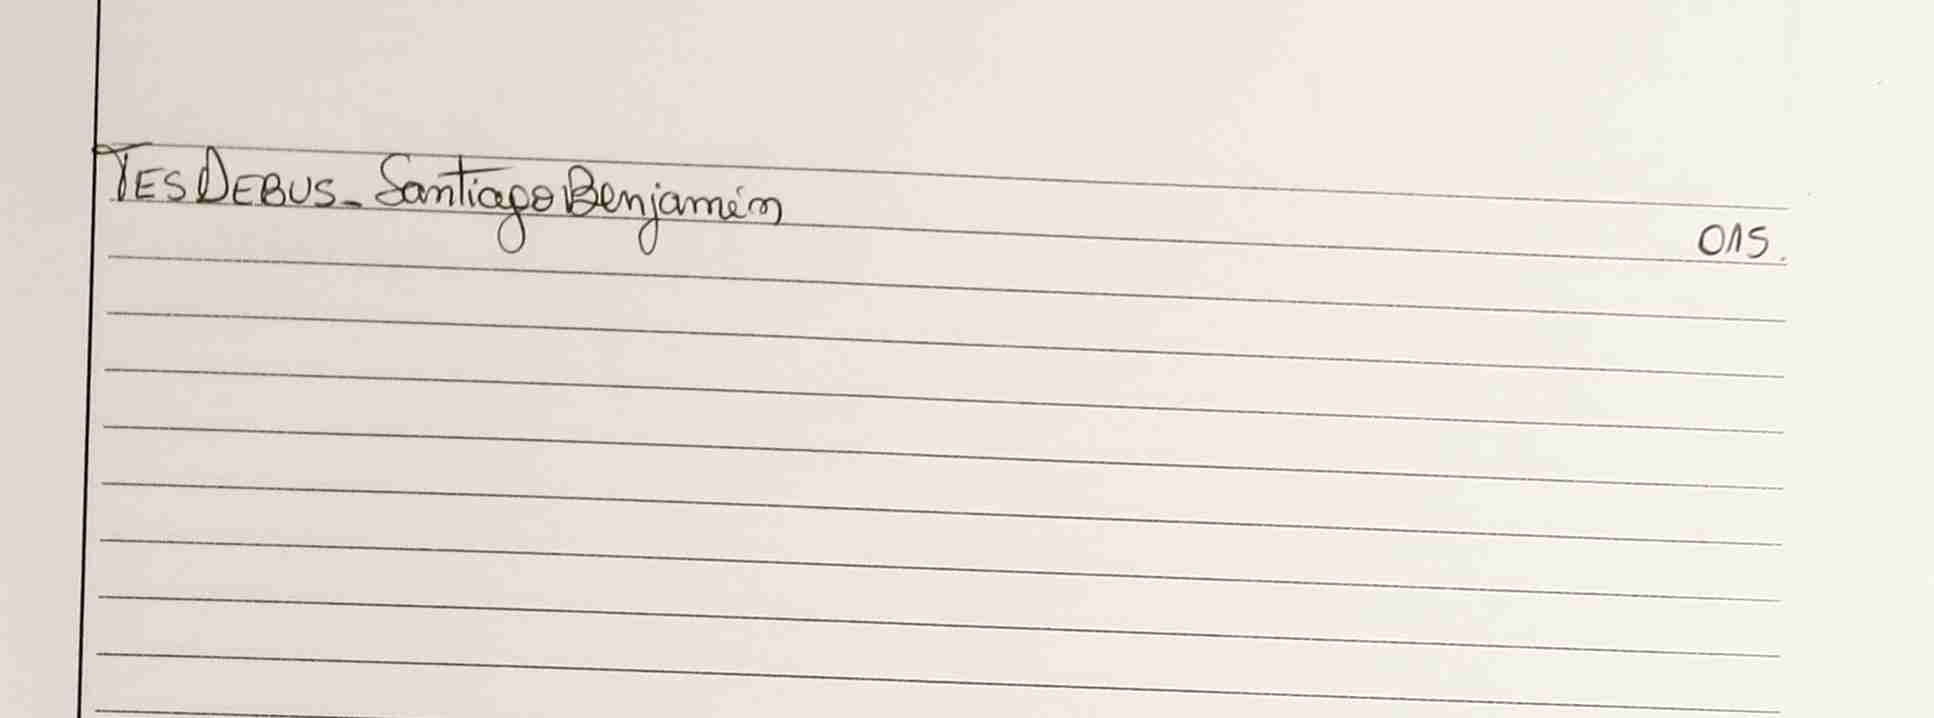 TESDEBUS - Santiago Benjamín 015.